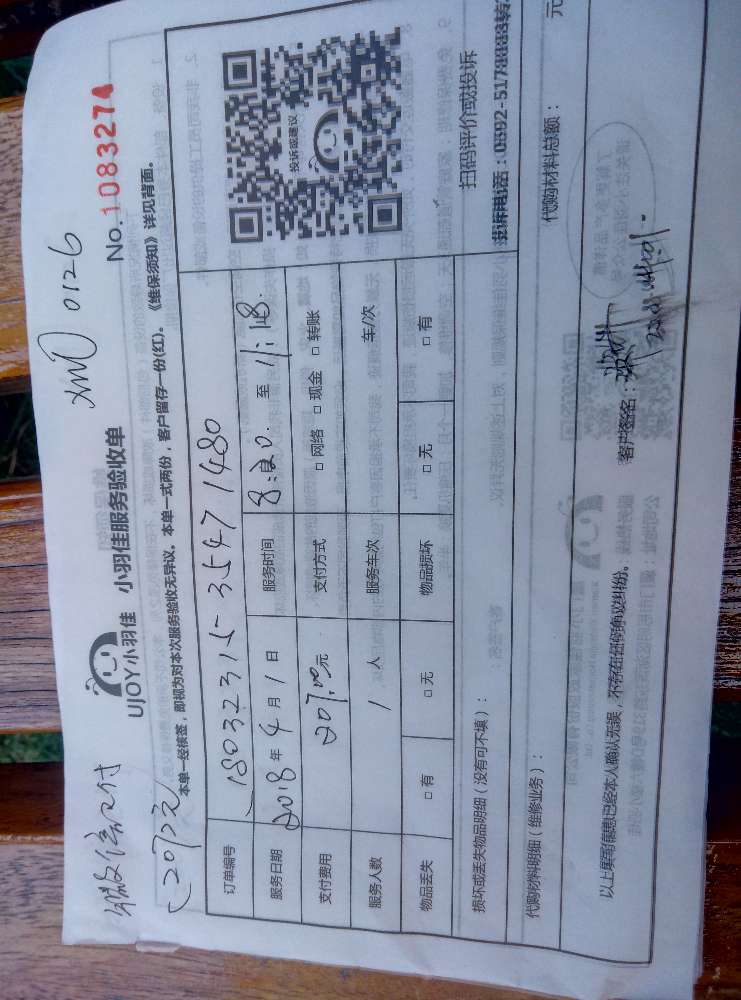 xm 0126
微信已付
(207元)
UJOY小羽佳 小羽佳服务验收单
No.1083274
本单一经核签,即视为对本次服务验收无异议。本单一式两份,客户留存一份(红)。《维保须知》详见背面。
订单编号 18032315-35471480
服务日期 2018年4月1日 服务时间 8:20. 至 11:18.
支付费用 207.00元 支付方式 □网络 □现金 □转账
服务人数 1 人 服务车次 车/次
物品丢失 □有 □无 物品损坏 □无 □有
投诉或建议
扫码评价或投诉
投诉电话:0592-5178888转
损坏或丢失物品明细(没有可不填):
代购材料明细(维修业务): 代购材料总额: 元
以上填写信息已经本人确认无误,不存在任何争议纠纷。 客户签名: